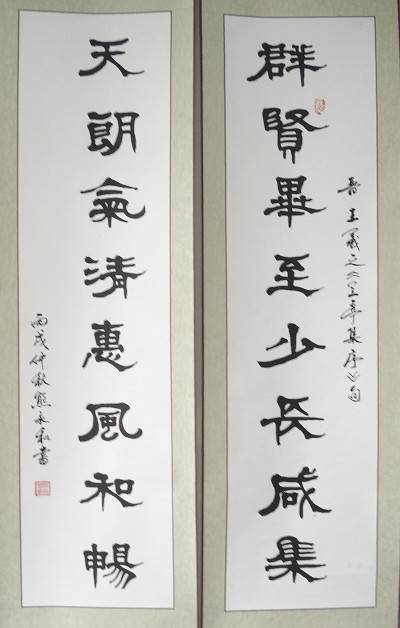 晋王羲之《兰亭集序》句
群賢畢至少长咸集
天朗氣清惠風和暢
丙戌仲秋熊永和書